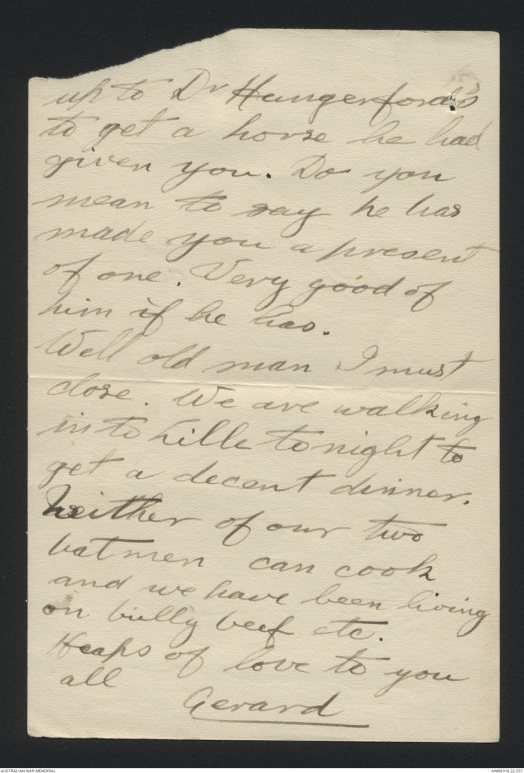 up to Dr Hungerford's
to get a horse he had
given you. Do you
mean to say he has
made you a present
of one. Very good of
him if he has.
Well old man I must
close. We are walking
into Lille tonight to
get a decent dinner.
Neither of our two
batmen can cook
and we have been living
on bully beef etc.
Heaps of love to you
all
Gerard
AUSTRALIAN WAR MEMORIAL